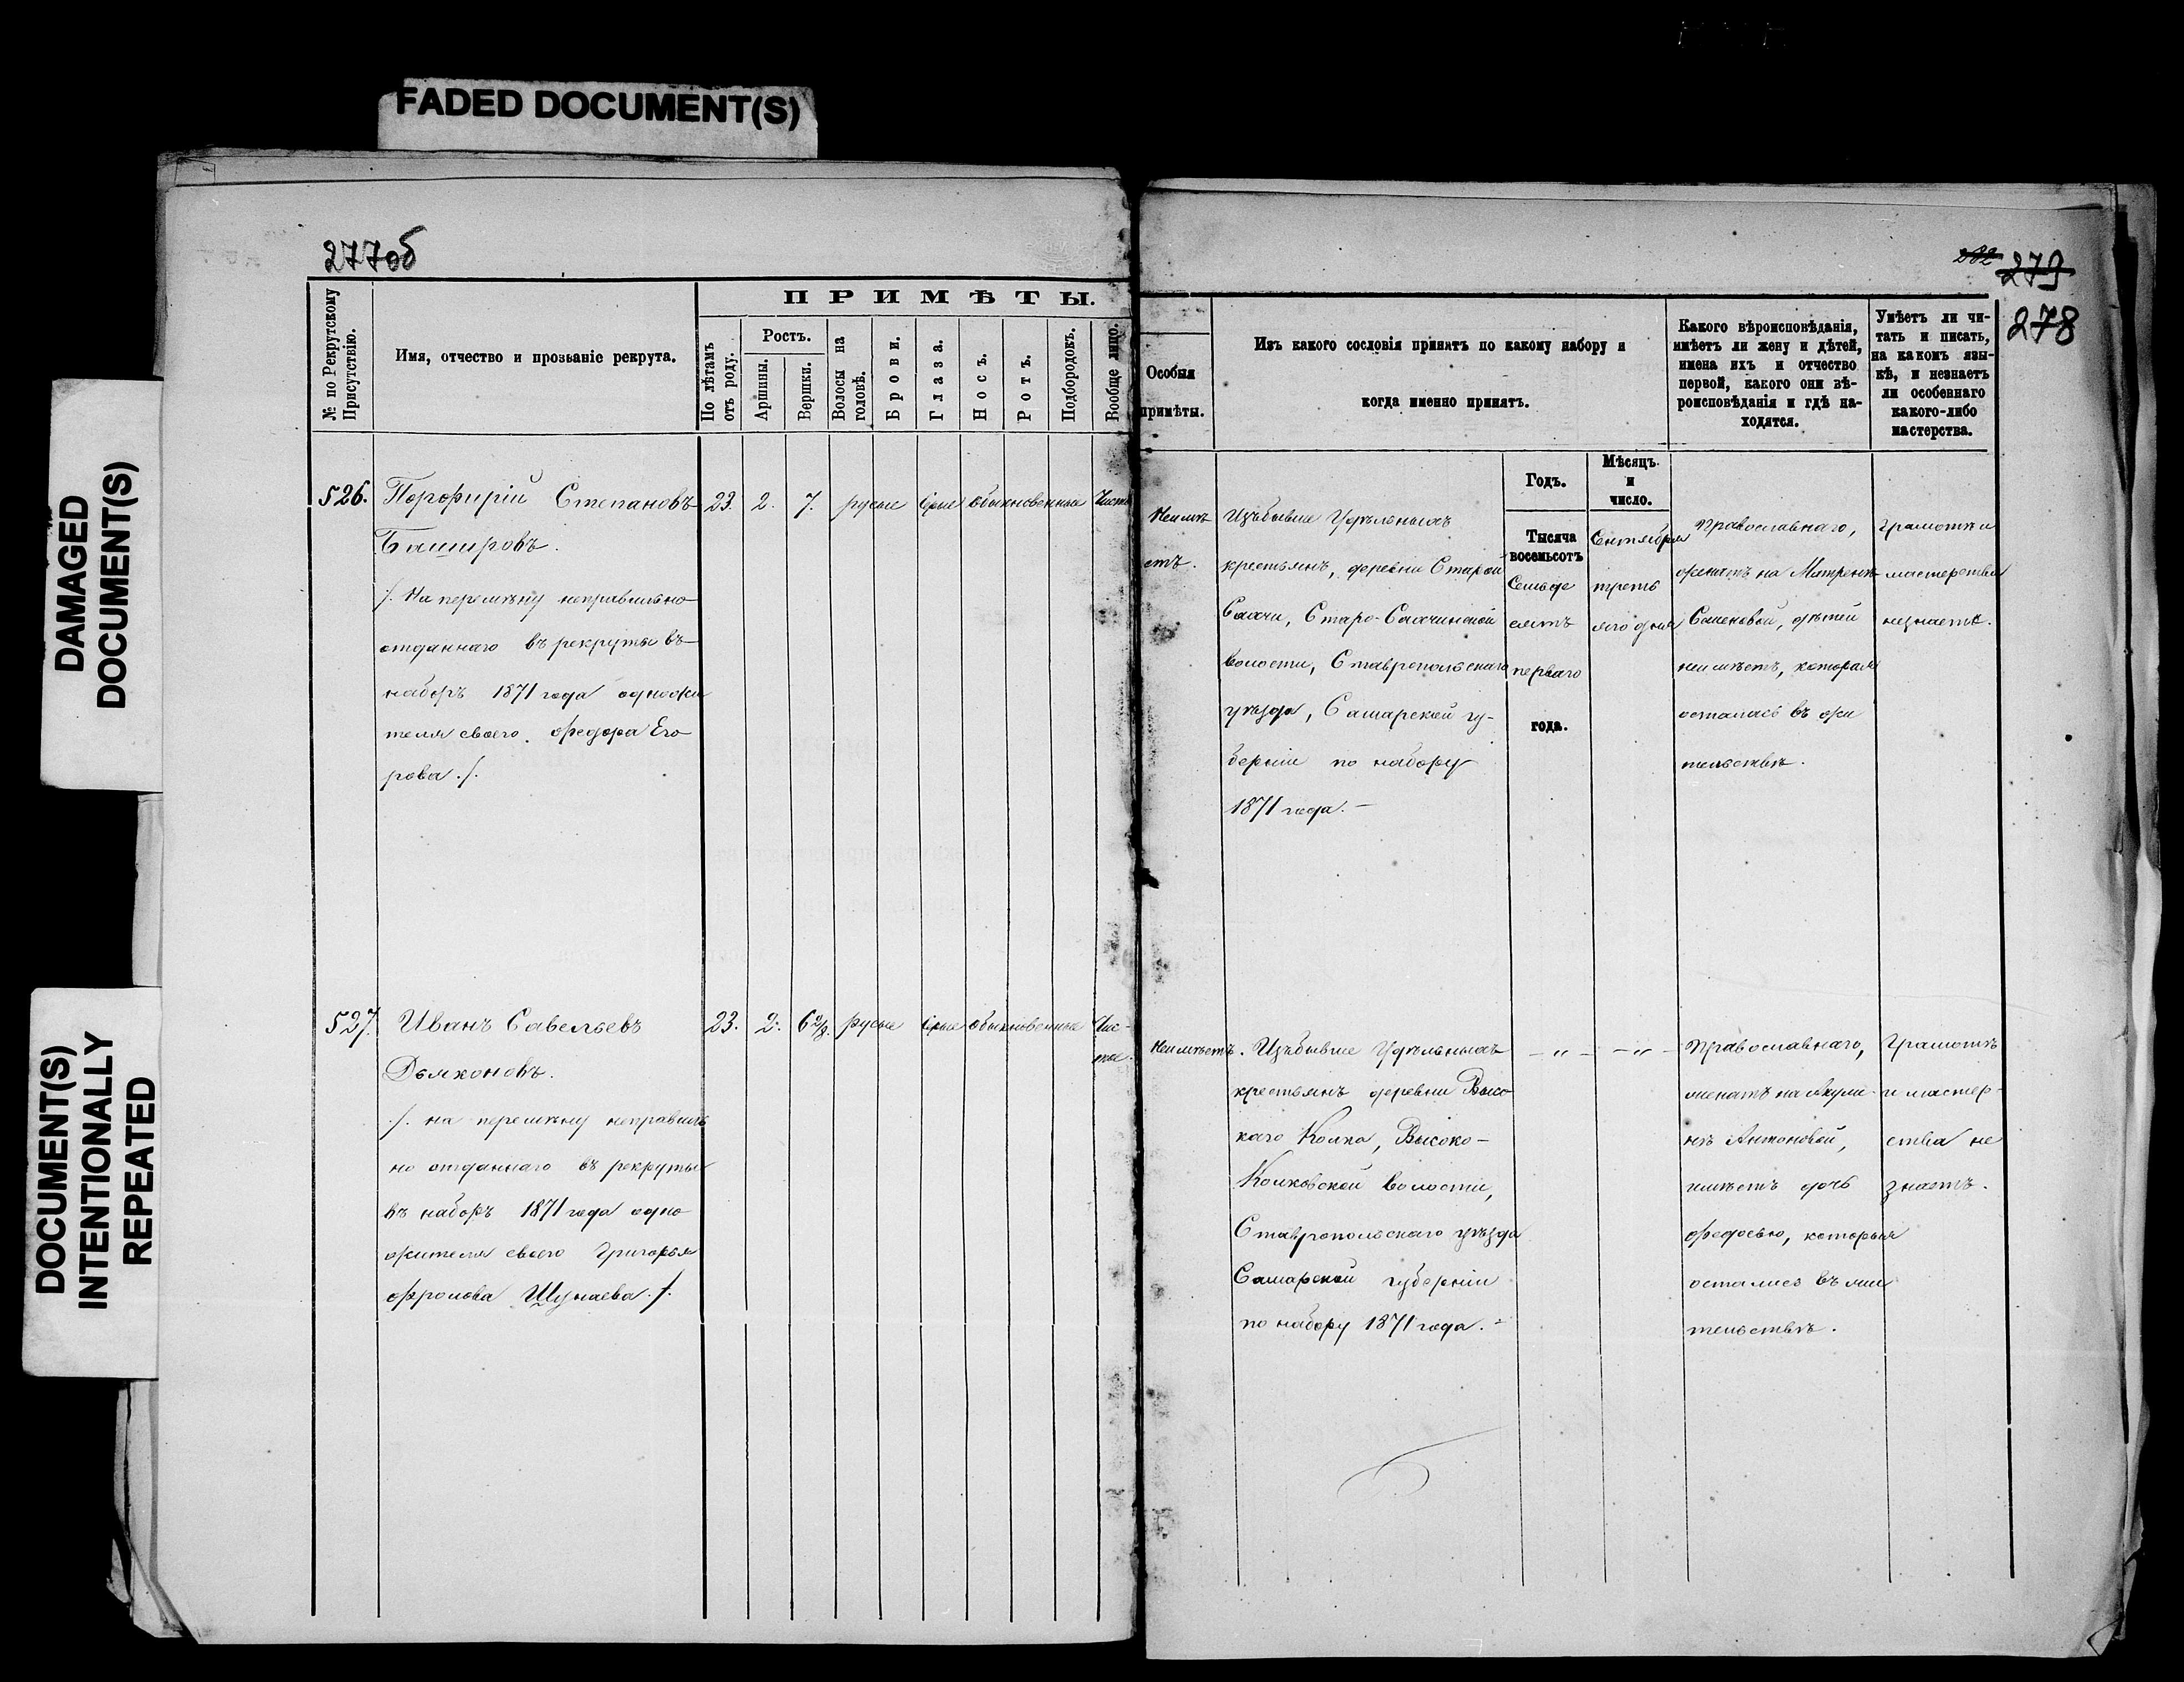 FADED DOCUMENT(S)
DAMAGED
DOCUMENT(S)
DOCUMENT(S)
INTENTIONALLY
REPEATED
277об
№ по Рекрутскому
Присутствію.
Имя, отчество и прозваніе рекрута.
ПРИМѢТЫ.
По лѣтамъ
отъ роду.
Ростъ.
Аршины.
Вершки.
Волосы на
головѣ.
Брови.
Глаза.
Носъ.
Ротъ.
Подбородокъ.
Вообще лицо.
526.
Порфирій Степановъ
Башировъ.
/. На перемѣну неправильно
отданнаго въ рекруты въ
наборъ 1871 года одножи
теля своего Федора Его
рова ./.
23. 2. 7. русые сѣрые обыкновенные Чист
527.
Иванъ Савельевъ
Дьяконовъ.
./. на перемѣну неправиль
но отданнаго въ рекруты
въ наборъ 1871 года одно
жителя своего Григорья
Фролова Шунаева ./.
23. 2. русые сѣрые обыкновенные Чис-
тое.
282
279
278
Особыя
примѣты.
Изъ какого сословія принятъ по какому набору и
когда именно принятъ.
Какого вѣроисповѣданія,
имѣетъ ли жену и дѣтей,
имена ихъ и отчество
первой, какого они вѣ-
роисповѣданія и гдѣ на-
ходятся.
Умѣетъ ли чи-
тать и писать,
на какомъ язы-
кѣ, и незнаетъ
ли особеннаго
какого-либо
мастерства.
Неимѣ
етъ.
Изъбывше Удѣльныхъ
крестьянъ, деревни Старой
Сахчи, Старо-Сахчинской
волости, Ставропольскаго
уѣзда, Самарской гу-
берніи по набору
1871 года. —
Годъ.
Тысяча
восемьсотъ
Семьде
сятъ
перваго
года.
Мѣсяцъ
и
число.
Сентября
треть
яго дня
Православнаго,
женатъ на Матренѣ
Семеновой, дѣтей
неимѣетъ, которая
осталась въ жи
тельствѣ.
Грамотѣ и
мастерства
незнаетъ.
Неимѣетъ.
Изъбывше Удѣльныхъ
крестьянъ деревни Высо
каго Колка, Высоко-
Колковской волости,
Ставропольскаго уѣзда
Самарской губерніи
по набору 1871 года. -
— „ — — „ —
Православнаго,
женатъ на Акули
нѣ Антоновой,
имѣетъ дочь
Федосью, которыя
остались въ жи
тельствѣ.
Грамотѣ
и мастер-
ства не
знаетъ.